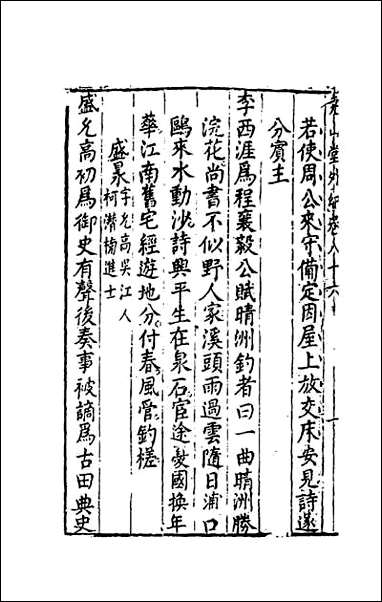 堯山堂外紀卷八十六
若使周公來守備定因屋上放交床安見詩遂
分賓主
李西涯爲程襄毅公賦晴洲釣者曰一曲晴洲勝
浣花尚書不似野人家溪頭雨過雲隨日浦口
鷗來水動沙詩興平生在泉石宦途憂國換年
華江南舊宅經遊地分付春風管釣槎
盛昶字允高吳江人
柯潛榜進士
盛允高初爲御史有聲後奏事被謫爲古田典史